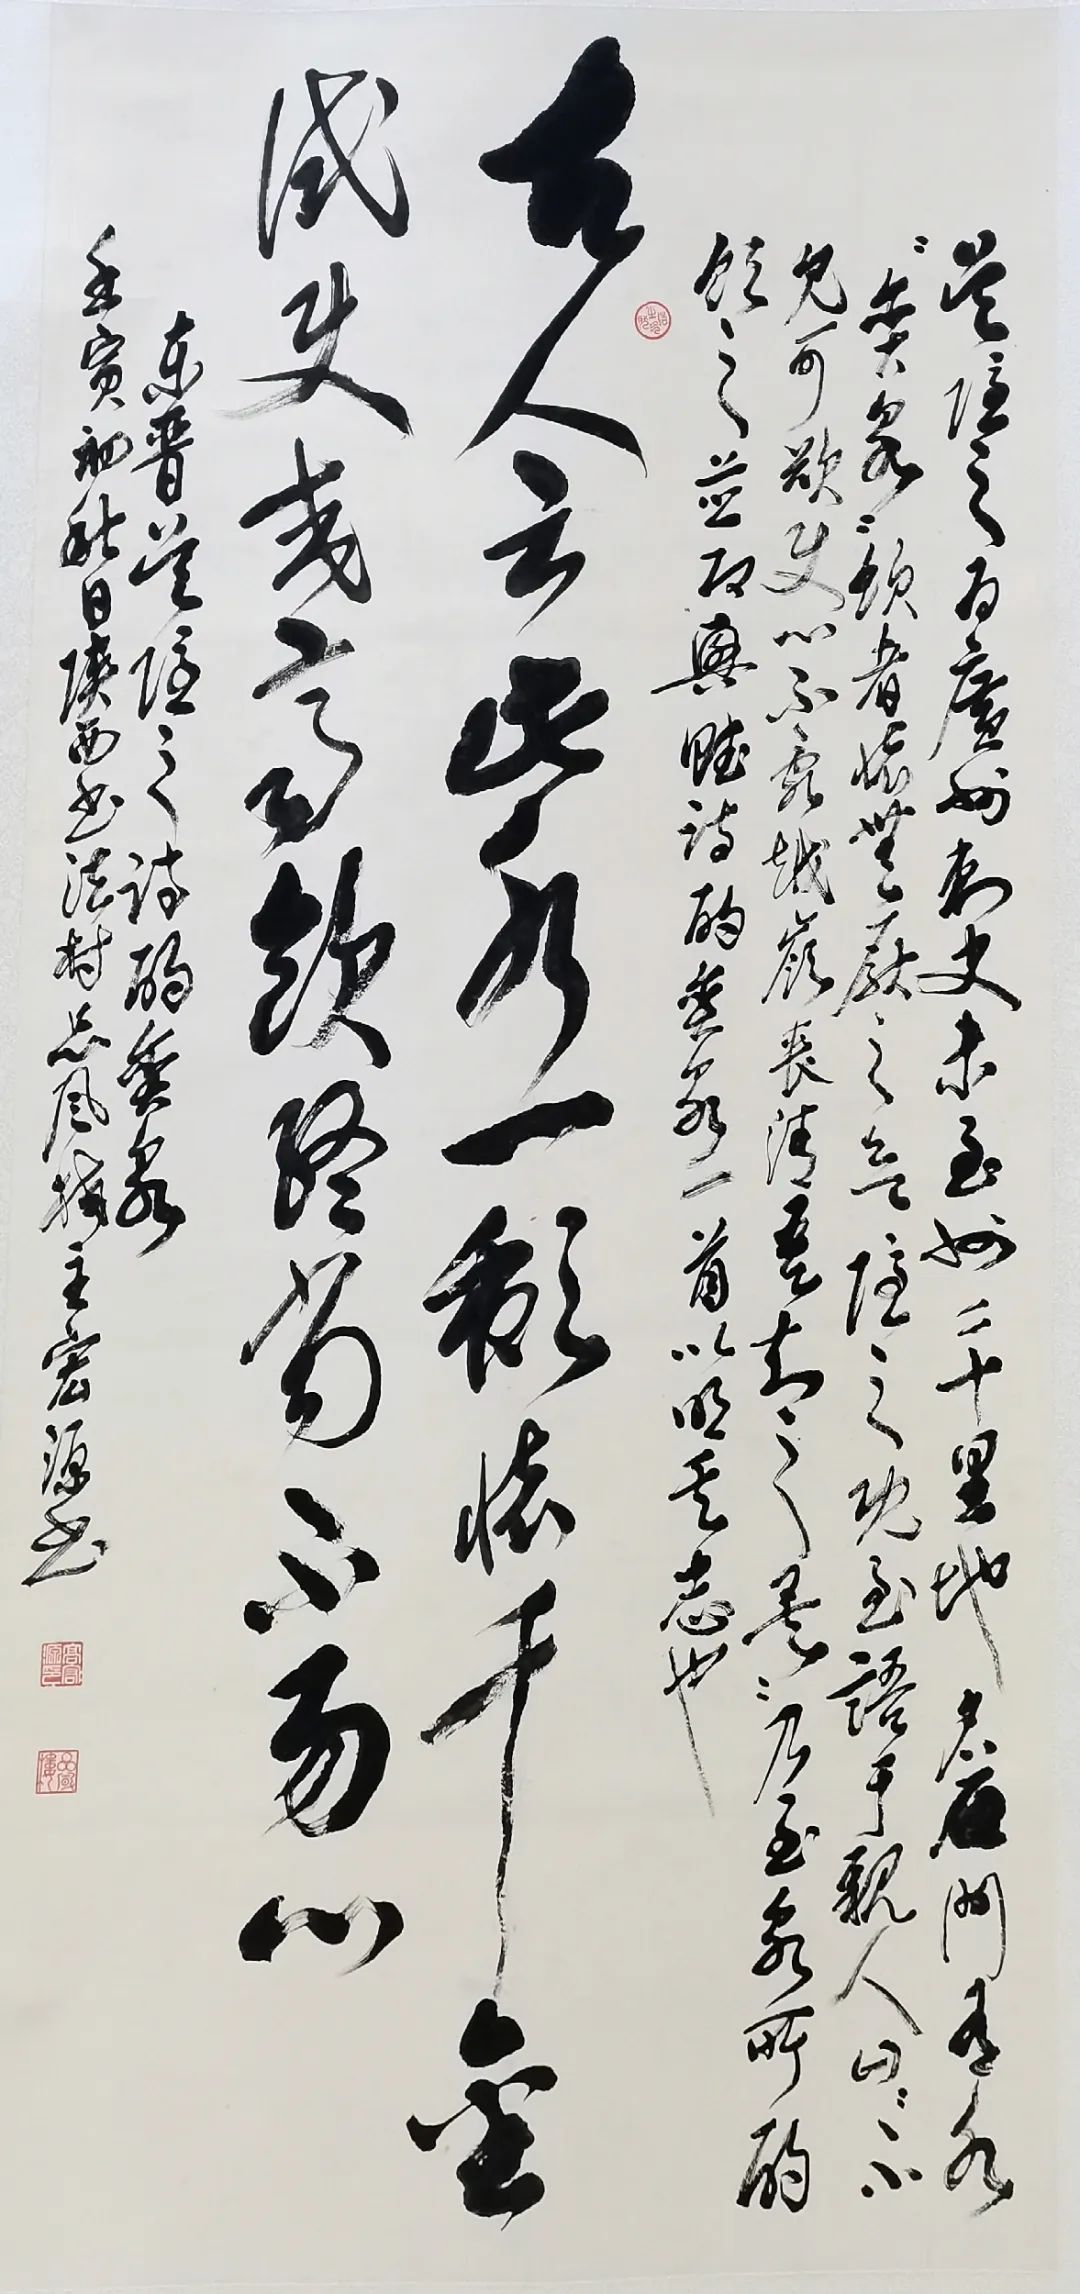 吴隐之为廣州刺史未至州二十里地名石门有水
“贪泉”饮者怀無厌之隐之既至語于親人曰“不
见可欲使心不乱越岭丧清吾知之矣”乃至泉所酌
饮之並取興賦诗酌贪泉一首以明其志也
古人云此水一歃怀千金
试使夷齐饮终当不易心
东晋吴隐之诗酌贪泉
壬寅初秋日陕西书法村品风楼主宏源书
高宏源印
品風樓